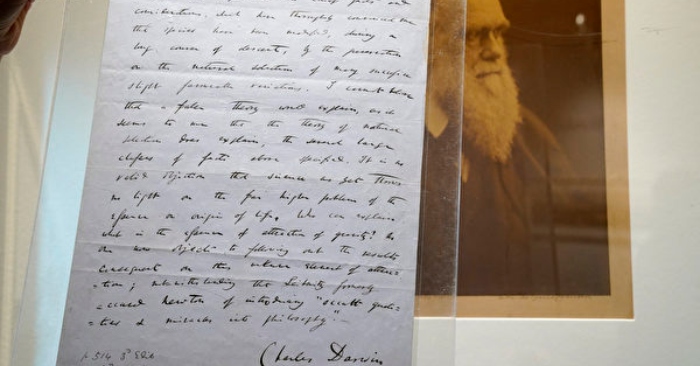 facts and
considerations, which have thoroughly convinced me
that species have been modified, during a
long course of descent, by the preservation
or the natural selection of many successive
slight favourable variations. I cannot believe
that a false theory would explain, as it
seems to me that the theory of natural
selection does explain, the several large
classes of facts above specified. It is no
valid objection that science as yet throws
no light on the far higher problem of the
essence or origin of life. Who can explain
what is the essence of attraction of gravity? No
one now objects to following out the results
consequent on this unknown element of attrac-
-tion; notwithstanding that Leibnitz formerly
-accused Newton of introducing "occult quali-
-ties & miracles into philosophy".
Charles Darwin
p 514 3d Edit